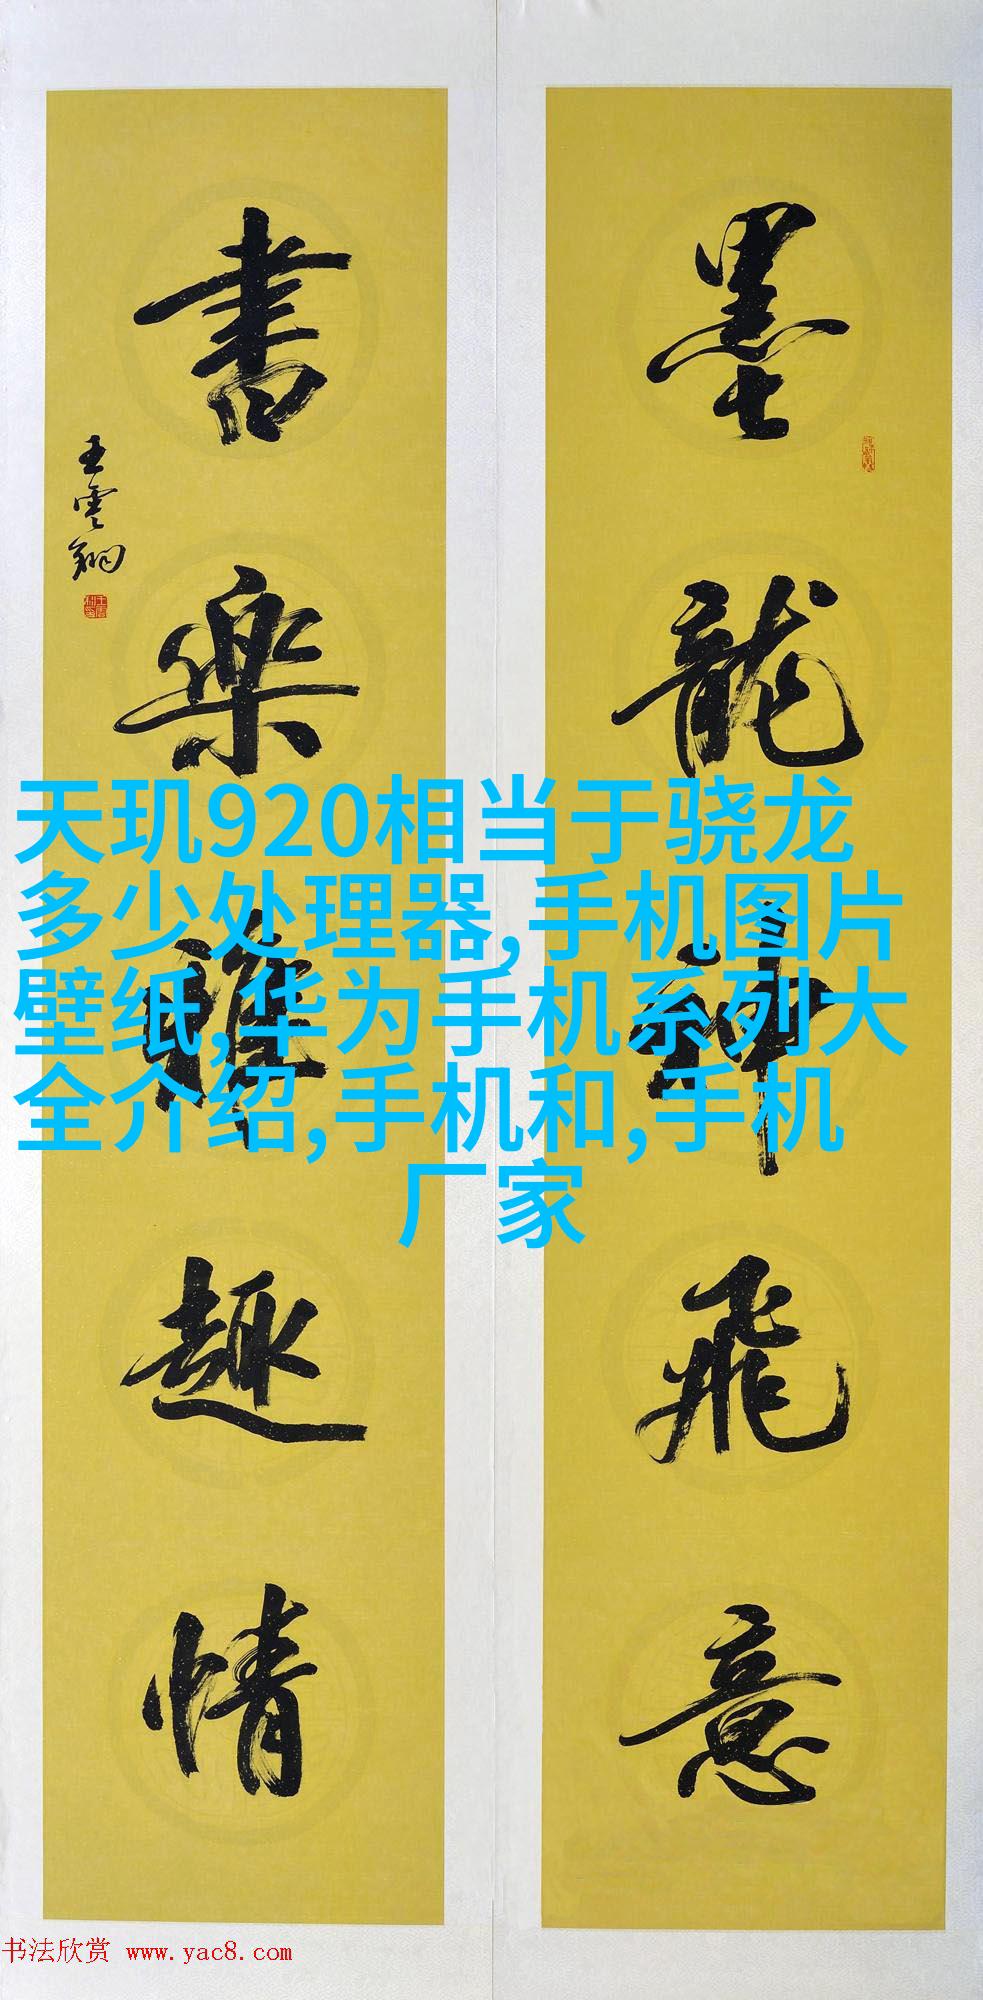 墨龍神飛意
書樂雅趣情
王雲翔
天玑920相当于骁龙
多少处理器,手机图片
壁纸,华为手机系列大
全介绍,手机和,手机
厂家
书法欣赏 www.yac8.com